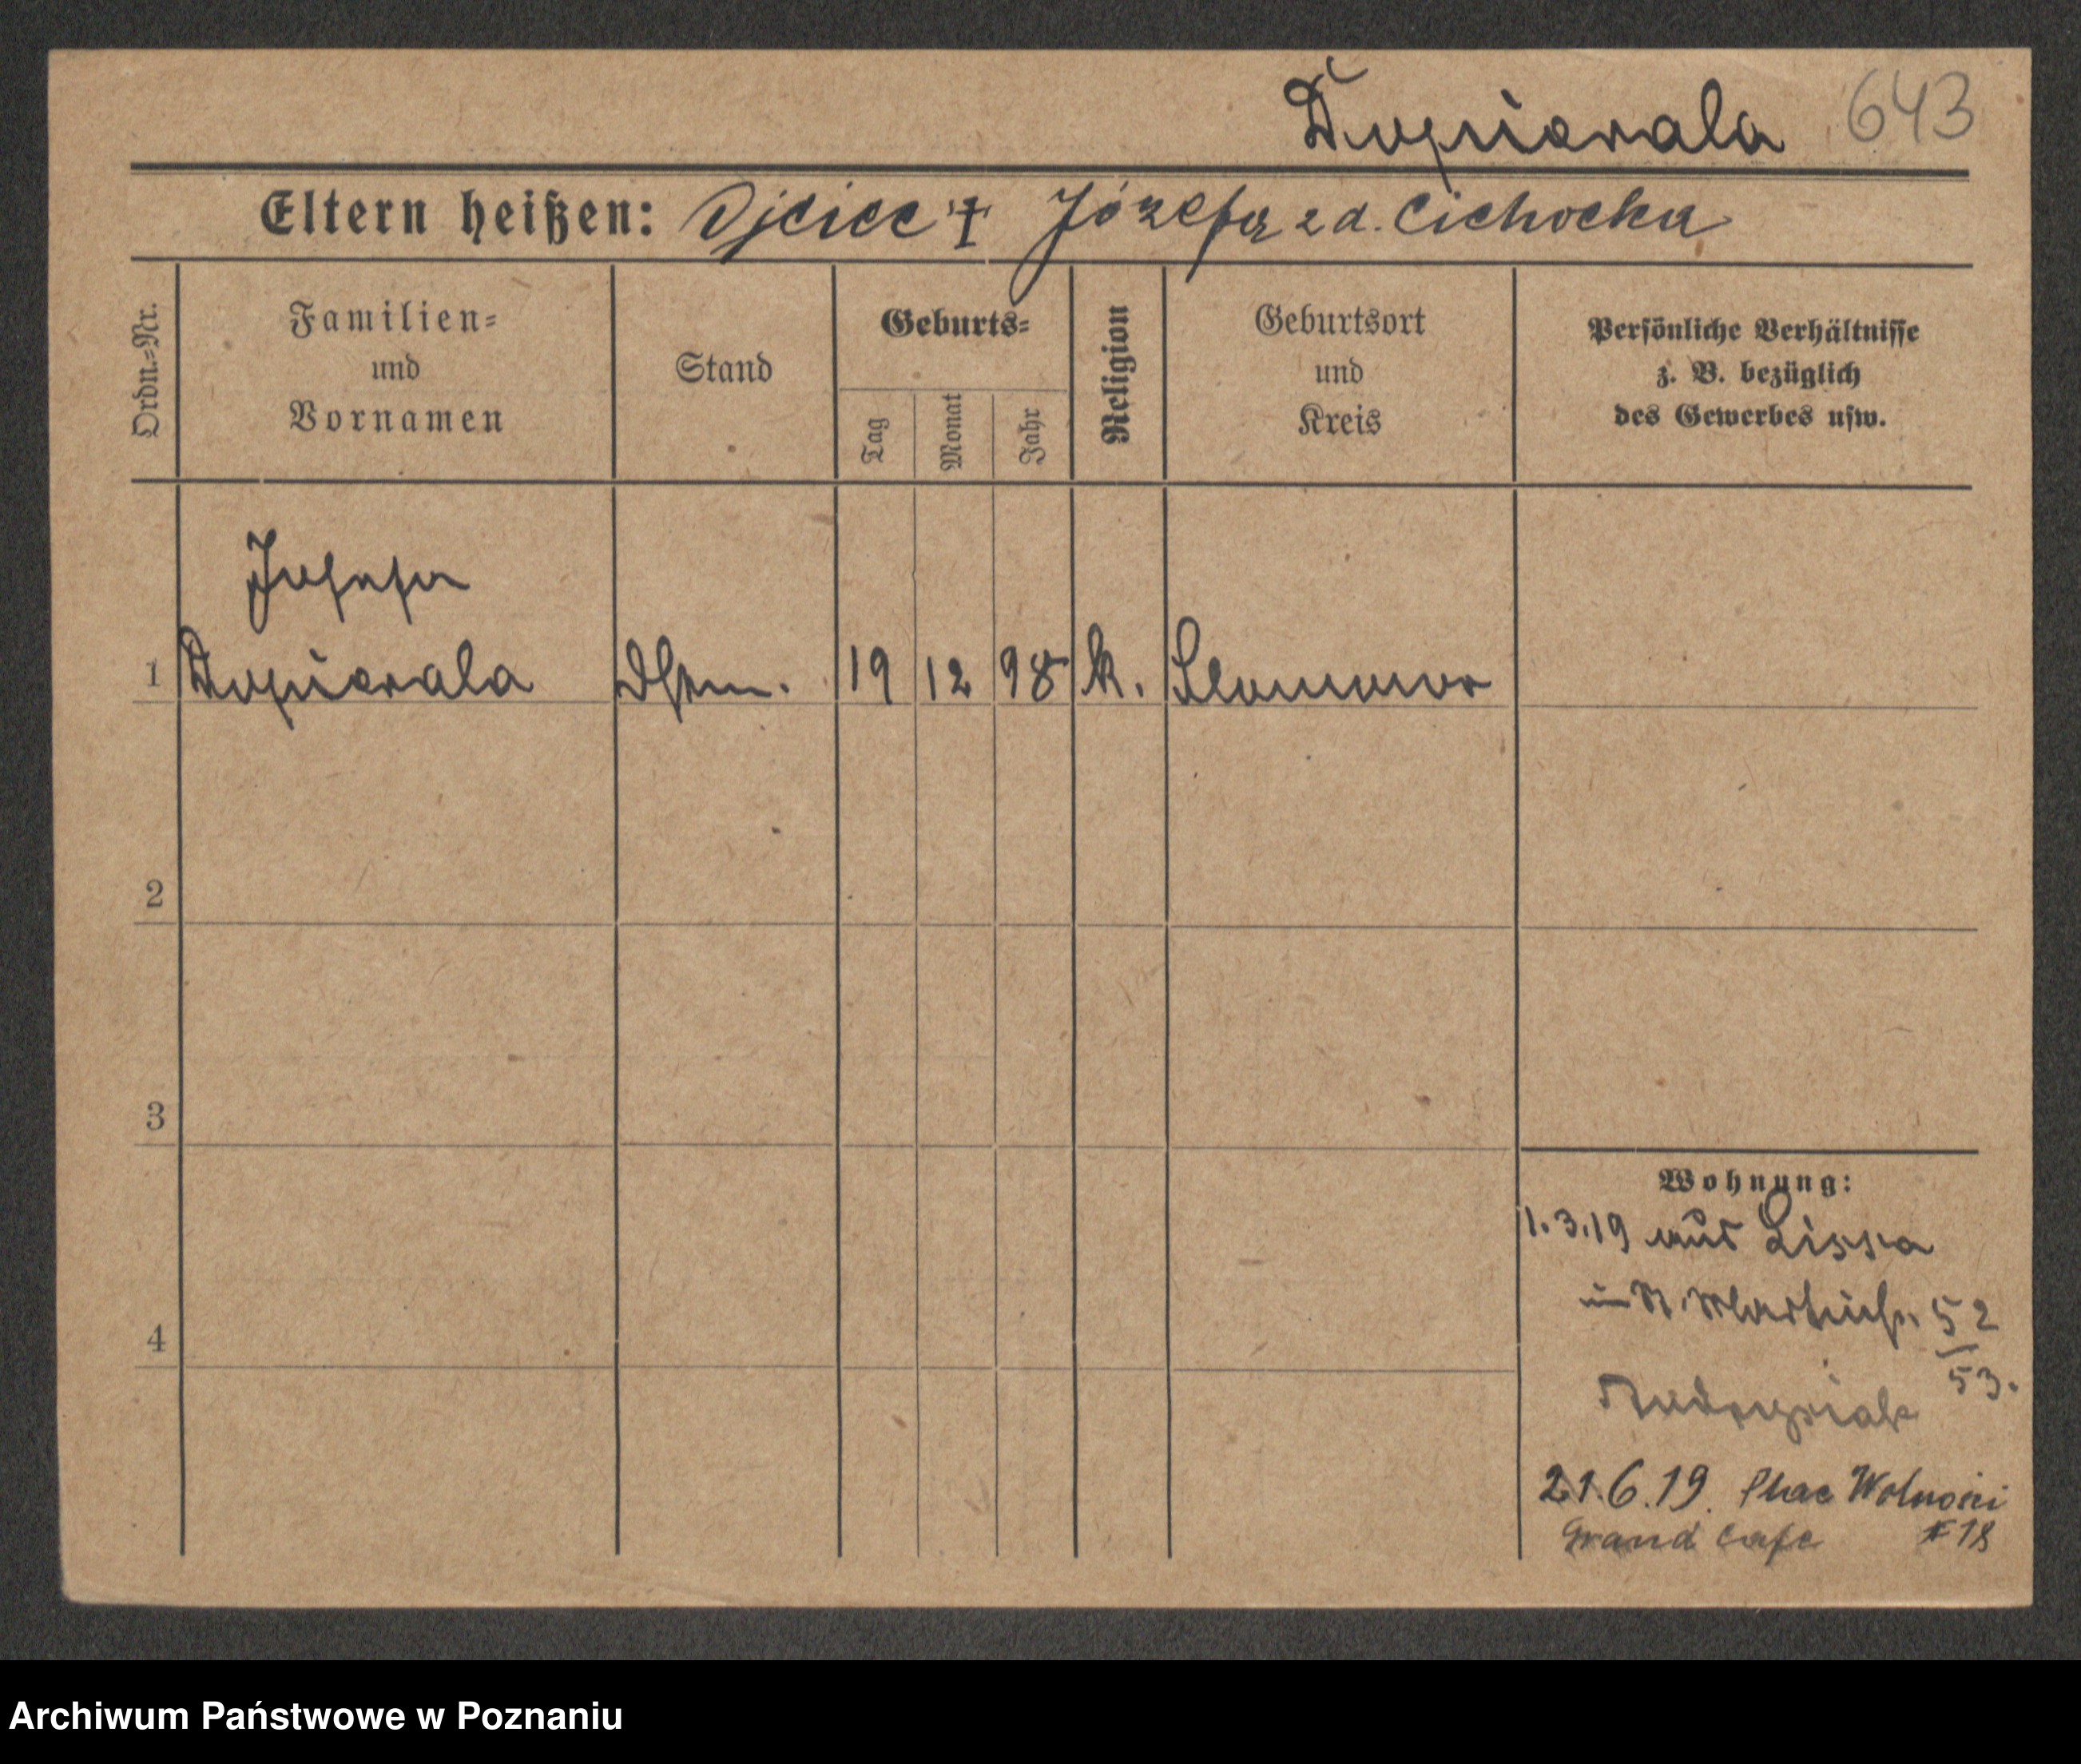 Dopierala 643
Eltern heißen: Ojciec † Józefa z d. Cichocka
Ordn.-Nr.
Familien-
und
Vornamen
Stand
Geburts-
Tag
Monat
Jahr
Religion
Geburtsort
und
Kreis
Persönliche Verhältnisse
z. B. bezüglich
des Gewerbes usw.
Josefa
1 Dopierala Dstm. 19 12 98 k.
2
3
4
Wohnung:
11.3.19 aus Lissa
in St. Martinstr. 52
53.
21.6.19. Plac Wolności
Grand Cafe # 18
Archiwum Państwowe w Poznaniu